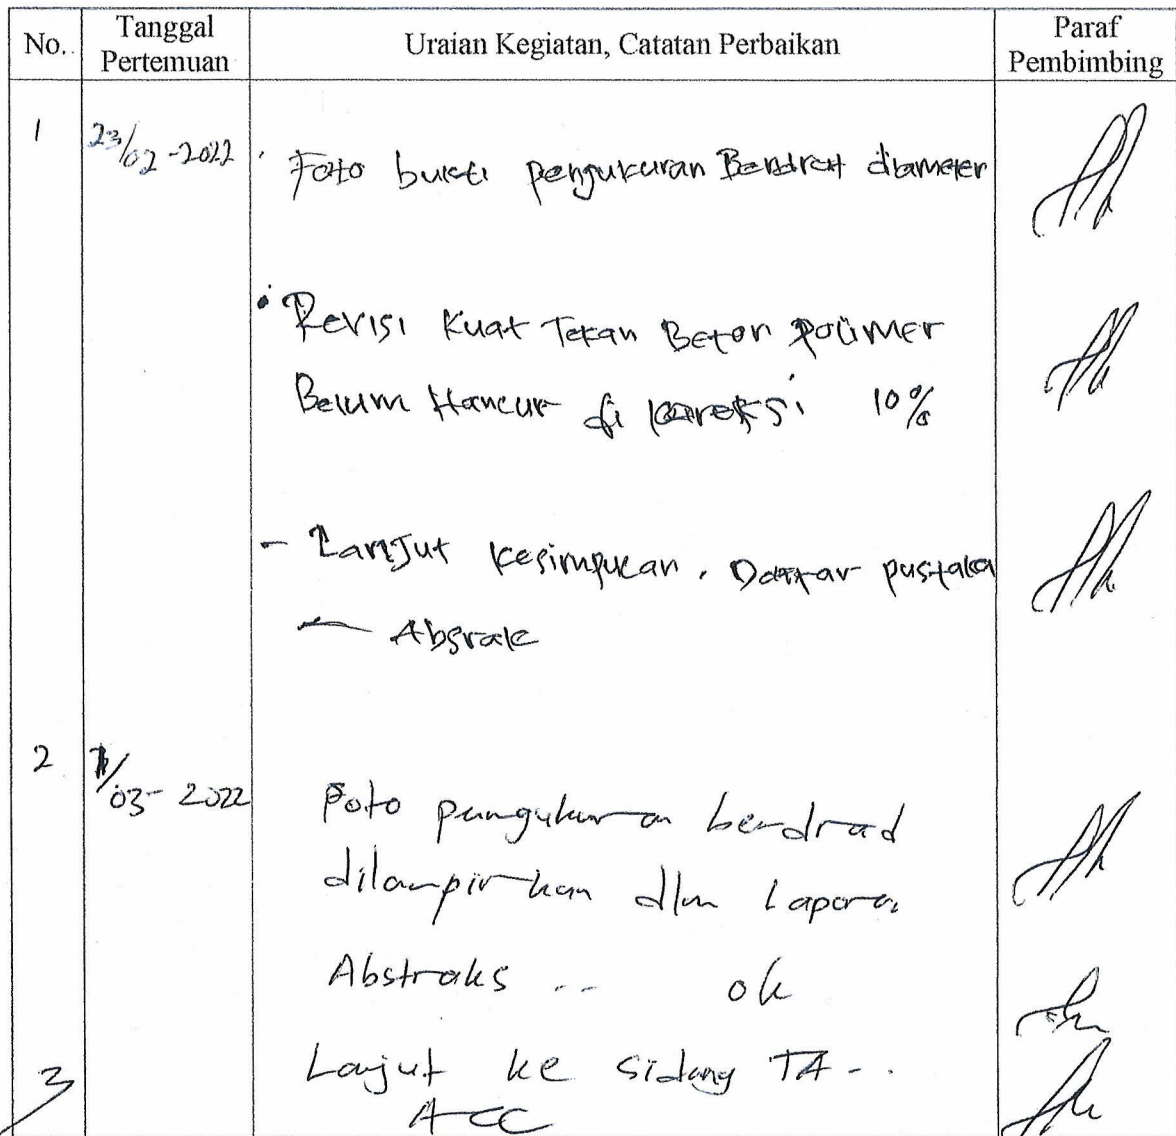 No.
Tanggal
Pertemuan
Uraian Kegiatan, Catatan Perbaikan
Paraf
Pembimbing
1
23/02-2022
Foto bukti pengukuran Bendrat diameter
• Revisi Kuat Tekan Beton Polimer
Belum Hancur di koreksi 10%
- Lanjut Kesimpulan, Daftar pustaka
- Absrak
2
1/03-2022
Foto pengukuran bendrad
dilampirkan dlm Laporan
Abstraks .. ok
3
Lanjut ke sidang TA - .
ACC